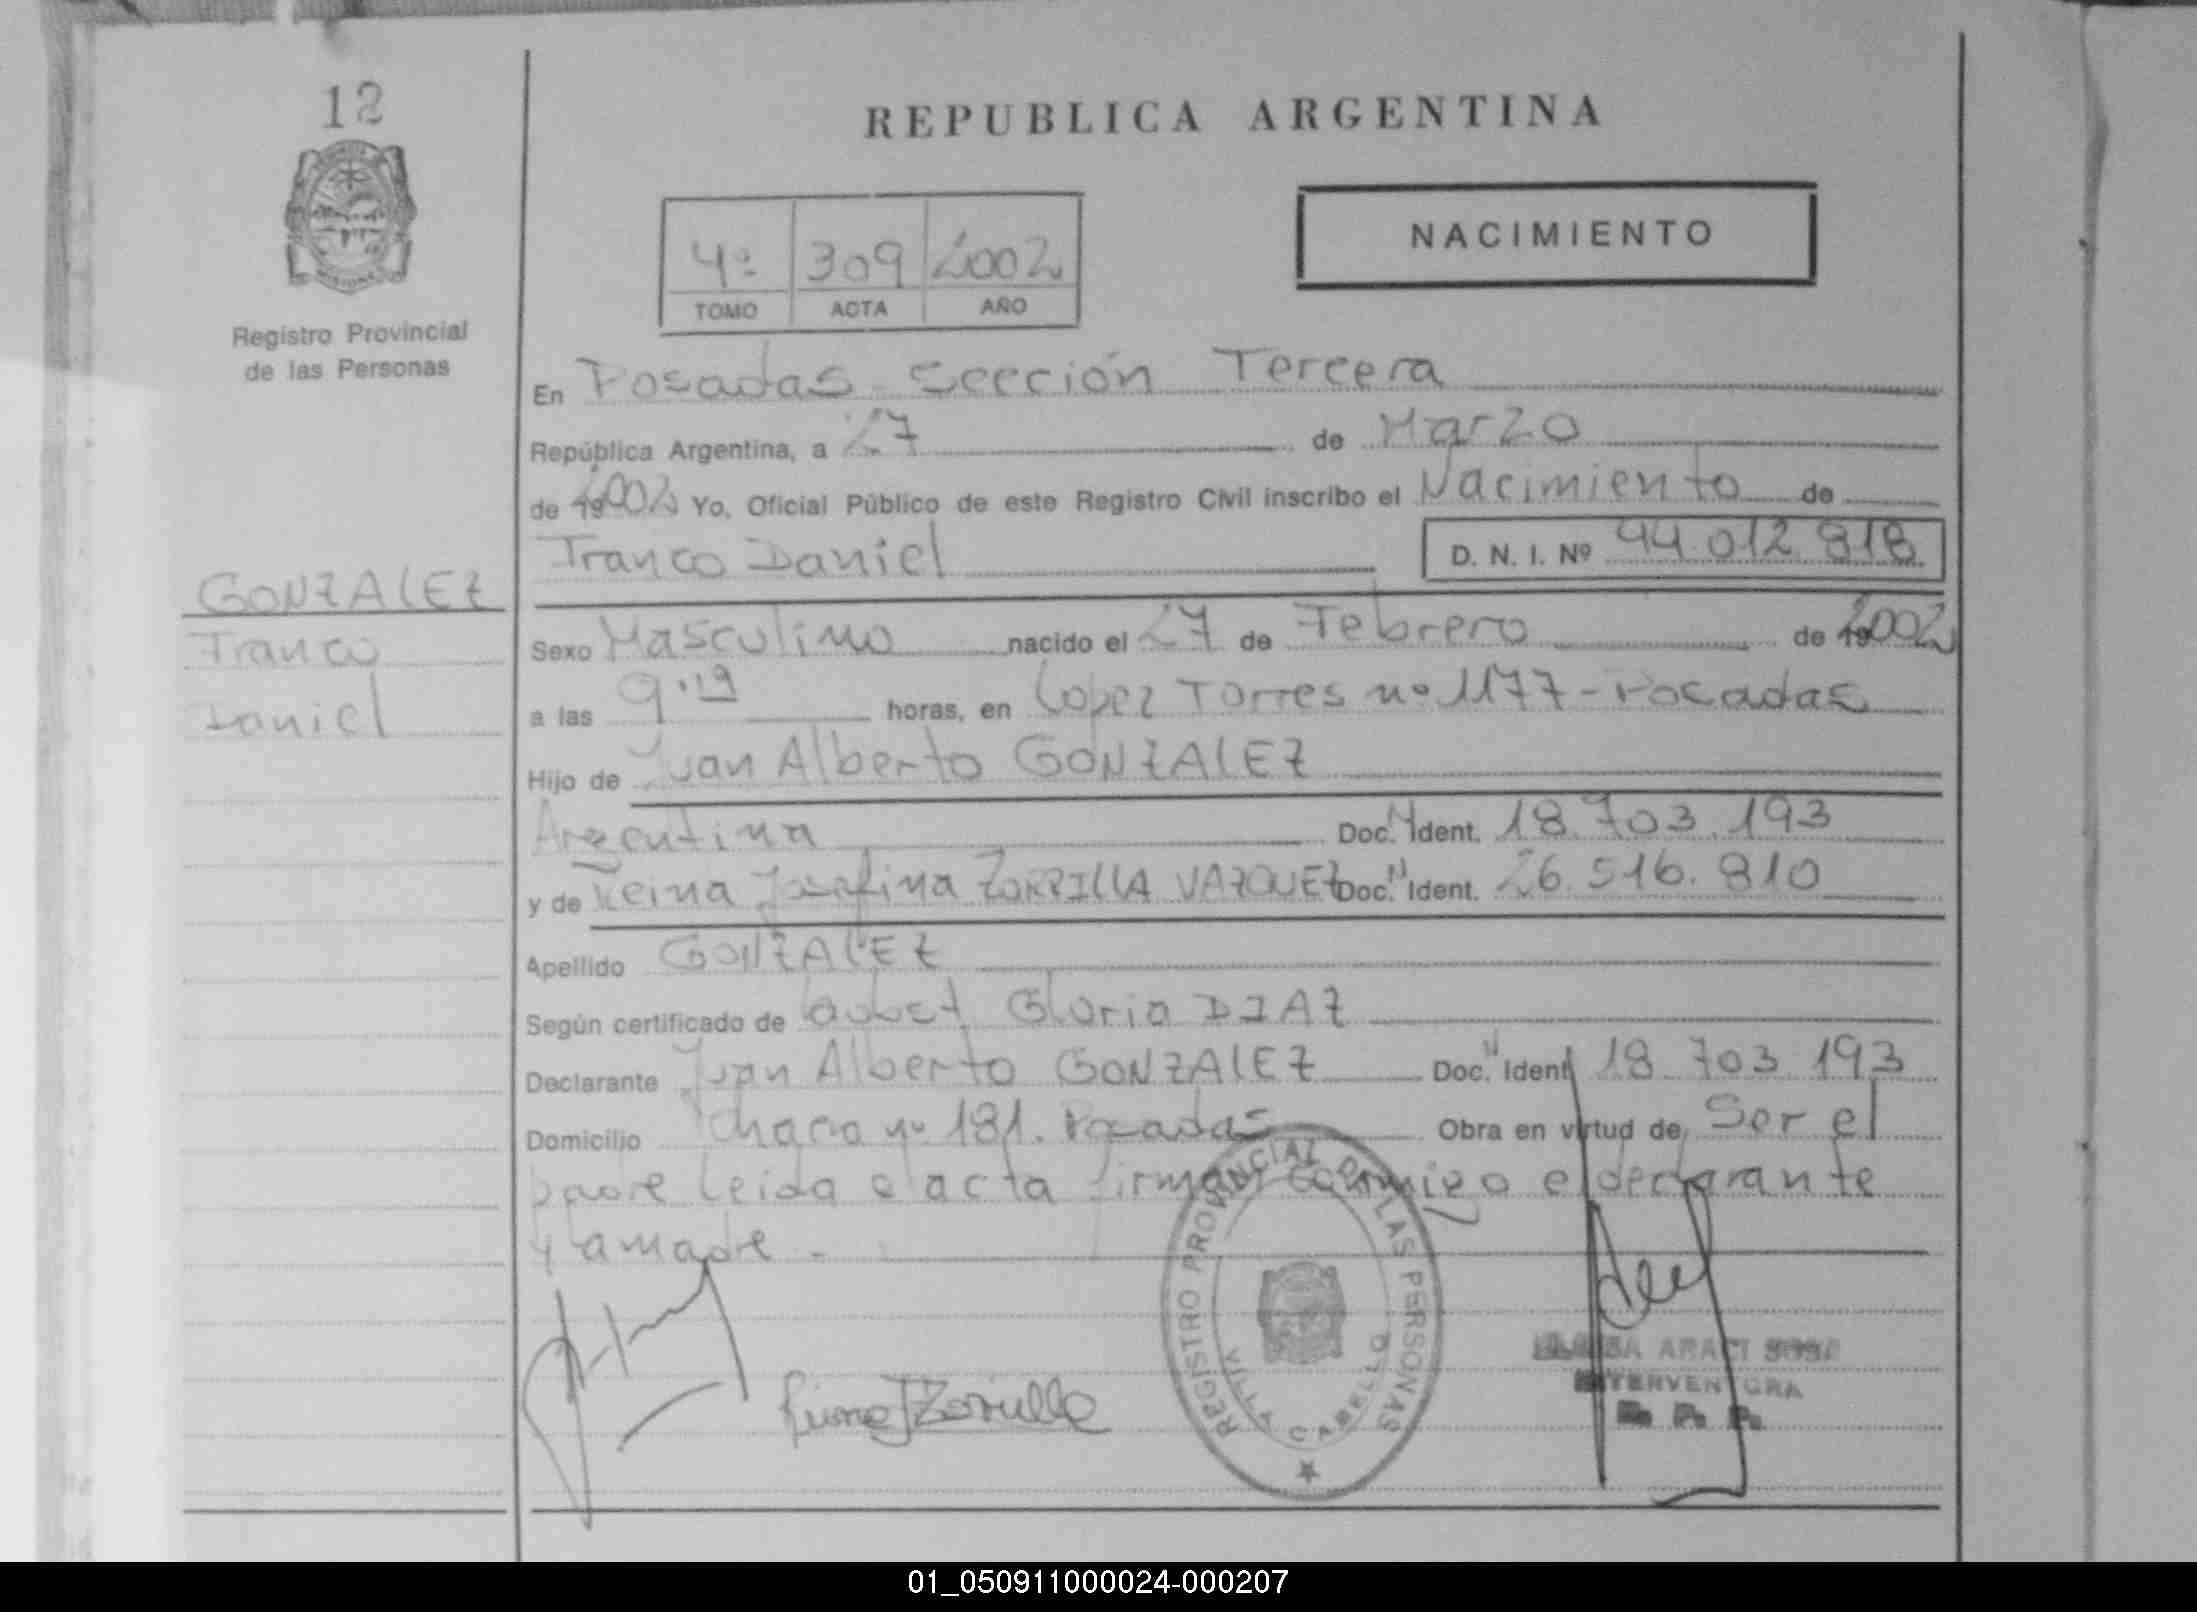 12
REPUBLICA ARGENTINA
NACIMIENTO
4º 309 2002
TOMO ACTA AÑO
Registro Provincial
de las Personas
En Posadas Sección Tercera
República Argentina, a 27 de Marzo
de 2002 Yo, Oficial Público de este Registro Civil inscribo el Nacimiento de
Franco Daniel D. N. I. Nº 44.012.818
GONZALEZ
Franco
Daniel
Sexo Masculino nacido el 27 de Febrero de 2002
a las 9'19 horas, en Lopez Torres nº 1177 - Posadas
Hijo de Juan Alberto GONZALEZ
Argentina Doc. N Ident. 18.703.193
y de Reina Josefina ZORRILLA VAZQUEZ Doc. N Ident. 26.516.810
Apellido GONZALEZ
Según certificado de Gloria DIAZ
Declarante Juan Alberto GONZALEZ Doc. N Ident. 18.703.193
Domicilio Chaco nº 181. Posadas Obra en virtud de Ser el
padre leida el acta firman conmigo el declarante
y la madre.-
REGISTRO PROVINCIAL DE LAS PERSONAS
VILLA CABELLO
ARACI SOSA
INTERVENTORA
R. P. P.
01_050911000024-000207